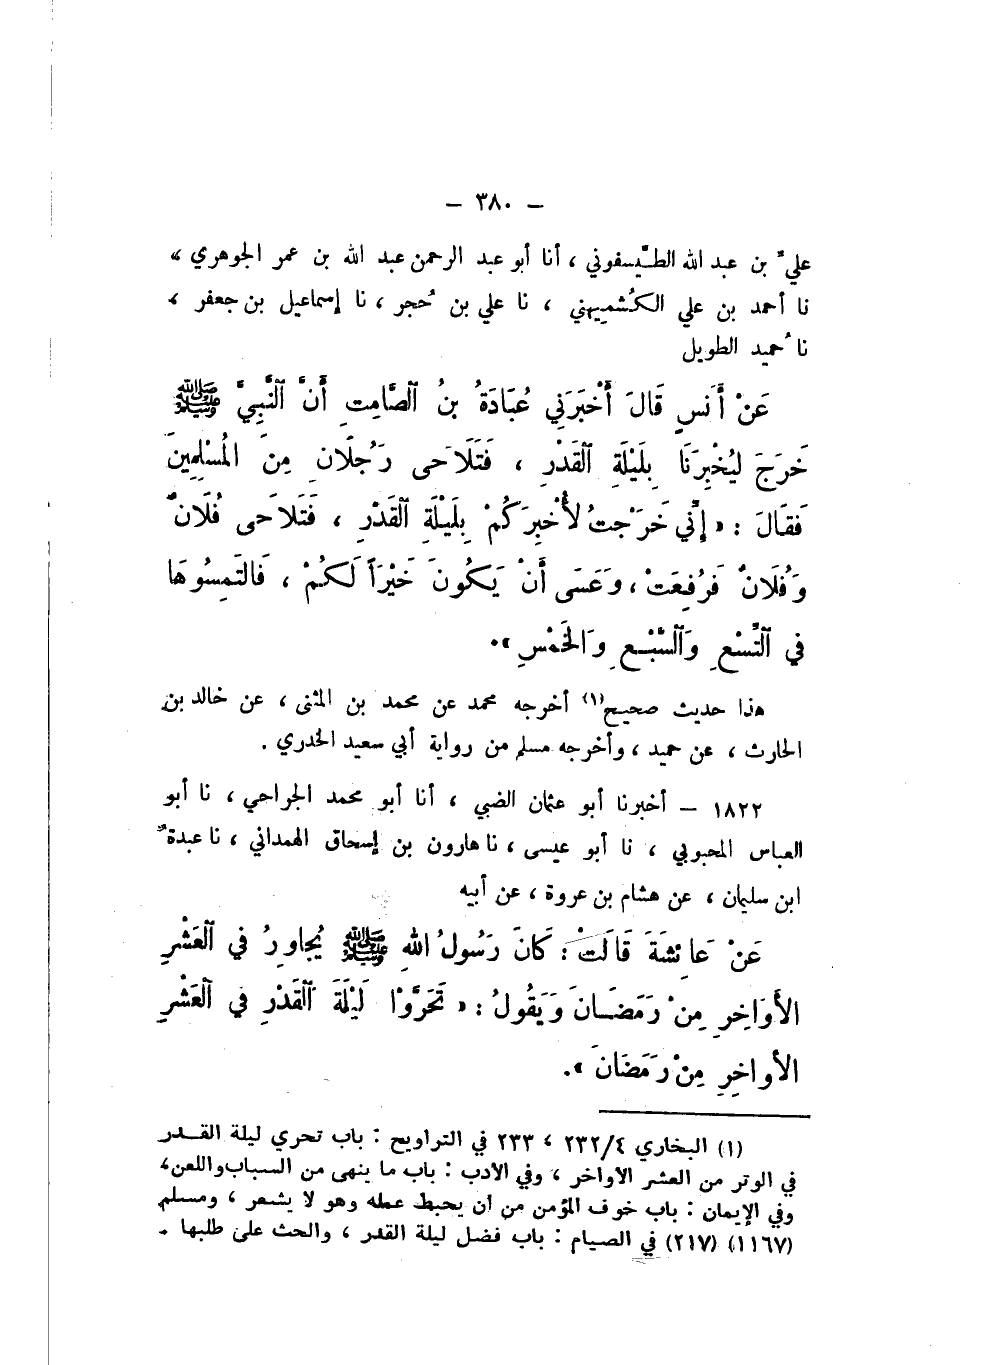 – ٣٨٠ –
عليُّ بن عبد الله الطَّيسفوني ، أنا أبو عبد الرحمن عبد الله بن عمر الجوهري ،
نا أحمد بن علي الكُشميهني ، نا علي بن حُجر ، نا إسماعيل بن جعفر ،
نا حُميد الطويل
عَنْ أَنَسٍ قَالَ أَخْبَرَنِي عُبَادَةُ بنُ الصَّامِتِ أَنَّ النَّبِيَّ ﷺ
خَرَجَ لِيُخْبِرَنَا بِلَيْلَةِ القَدْرِ ، فَتَلَاحَى رَجُلَانِ مِنَ المُسْلِمِينَ
فَقَالَ : « إِنِّي خَرَجْتُ لأُخْبِرَكُمْ بِلَيْلَةِ القَدْرِ ، فَتَلَاحَى فُلَانٌ
وَفُلَانٌ فَرُفِعَتْ ، وَعَسَى أَنْ يَكُونَ خَيْرَاً لَكُمْ ، فَالتَمِسُوهَا
فِي التِّسْعِ وَالسَّبْعِ وَالخَمْسِ » .
هذا حديث صحيح (١) أخرجه محمد عن محمد بن المثنى ، عن خالد بن
الحارث ، عن حميد ، وأخرجه مسلم من رواية أبي سعيد الخدري .
١٨٢٢ – أخبرنا أبو عثمان الضبي ، أنا أبو محمد الجراحي ، نا أبو
العباس المحبوبي ، نا أبو عيسى ، نا هارون بن إسحاق الهمداني ، نا عبدةُ
ابن سليمان ، عن هشام بن عروة ، عن أبيه
عَنْ عَائِشَةَ قَالَتْ : كَانَ رَسُولُ اللهِ ﷺ يُجَاوِرُ فِي العَشْرِ
الأَوَاخِرِ مِنْ رَمَضَانَ وَيَقُولُ : « تَحَرَّوْا لَيْلَةَ القَدْرِ فِي العَشْرِ
الأَواخِرِ مِنْ رَمَضَانَ » .
(١) البخاري ٢٣٢/٤ ، ٢٣٣ في التراويح : باب تحري ليلة القدر
في الوتر من العشر الأواخر ، وفي الأدب : باب ما ينهى من السباب واللعن ،
وفي الإيمان : باب خوف المؤمن من أن يحبط عمله وهو لا يشعر ، ومسلم
(١١٦٧) (٢١٧) في الصيام : باب فضل ليلة القدر ، والحث على طلبها .